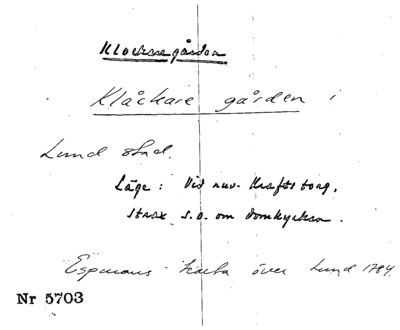 Klockaregården
Klåckare gården i
Lund stad.
Läge: Vid nuv. Krafts torg,
strax s.o. om domkyrkan.
Espmans karta över Lund 1784.
Nr 5703